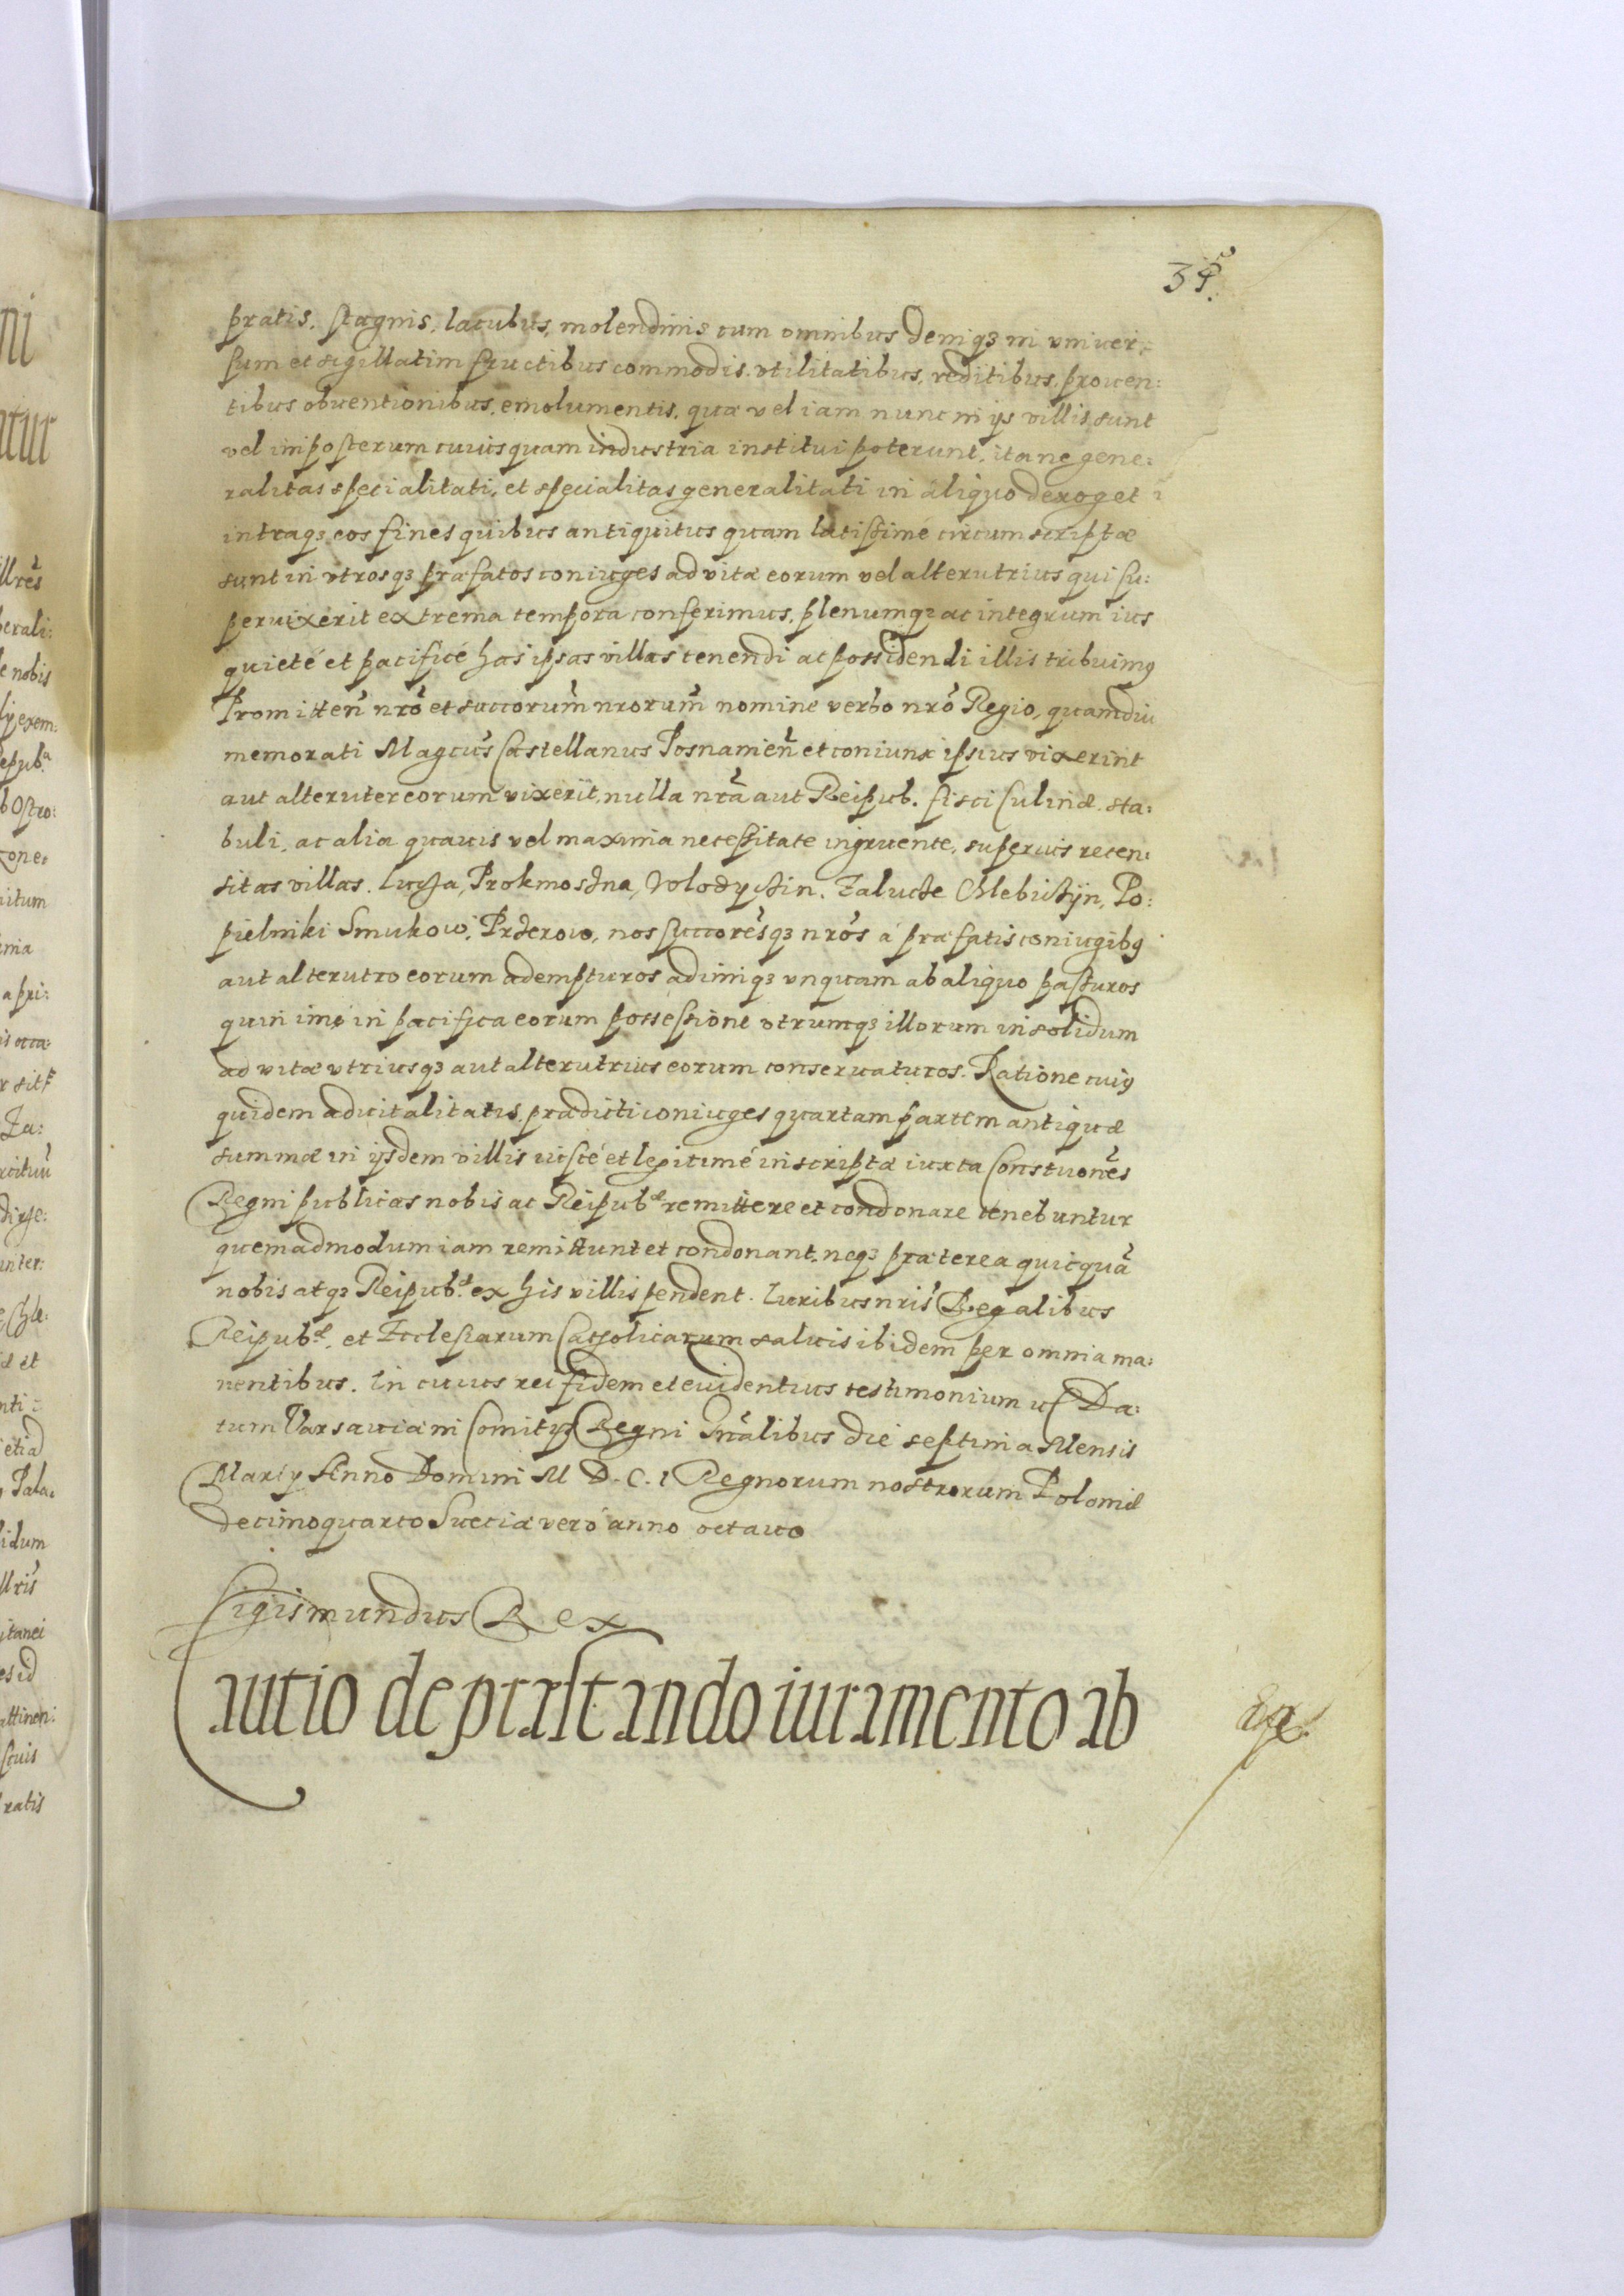 34
pratis, stagnis, lacubus, molendinis cum omnibus deniq3 in vniver,
sum et sigillatim fructibus commodis, vtilitatibus, reditibus, proven:
tibus obventionibus, emolumentis, quæ vel iam nunc in ijs villis sunt
vel imposterum cuiusquam industria institui poterunt, ita ne gene:
ralitas specialitati, et specialitas generalitati in aliquo deroget
intraq3 eos fines quibus antiquitus quam latissimé circumscriptæ
sunt in vtrosq3 præfatos coniuges ad vitæ eorum vel alterutrius qui su:
pervixerit extrema tempora conferimus, plenumq3 ac integrum ius
quieté et pacificé has ipsas villas tenendi ac possidendi illis tribuimꝰ
Promitteñ nrõ et succorum̃ nrorum̃ nomine verbo nrõ Regio, quamdiu
memorati Magcus̃ Castellanus Posnanieñ et coniunx ipsius vixerint
aut alteruter eorum vixerit, nulla nrã aut Reipub. fisci Culinæ sta:
buli, ac alia quavis vel maxima necessitate ingruente, superius recen:
sitas villas. Lucza, Prokmostna, Volodyctin, Zalucte Chlebictijn, Po:
pielniki Smukow, Przerow, nos succores̃q3 nrõs á præfatis coniugibꝰ
aut alterutro eorum adempturos adimiq3 vnquam ab aliquo passuros
quin imo in pacifica eorum possessione vtrumq3 illorum in solidum
ad vitæ vtriusq3 aut alterutrius eorum conservaturos. Ratione cuiꝰ
quidem advitalitatis prædicti coniuges quartam partem antiquæ
summæ in ijsdem villis iusté et legitimé inscriptæ iuxta Constuones̃
Regni publicas nobis ac Reipubæ remittere et condonare tenebuntur
quemadmodum iam remittunt et condonant, neq3 præterea quicquã
nobis atq3 Reipubæ ex his villis pendent. Iuribus nris̃ Regalibus
Reipubæ. et Ecclesiarum Catholicarum salvis ibidem per omnia ma:
nentibus. In cuius rei fidem et evidentius testimonium Da:
tum Varsaviæ in Comitijs Regni Gnãlibus die septima Mensis
Martij Anno Domini M D. C. I Regnorum nostrorum Poloniæ
decimoquarto Sueciæ veró anno octavo
Sigismundus Rex
Cautio de præstando iuramento ab